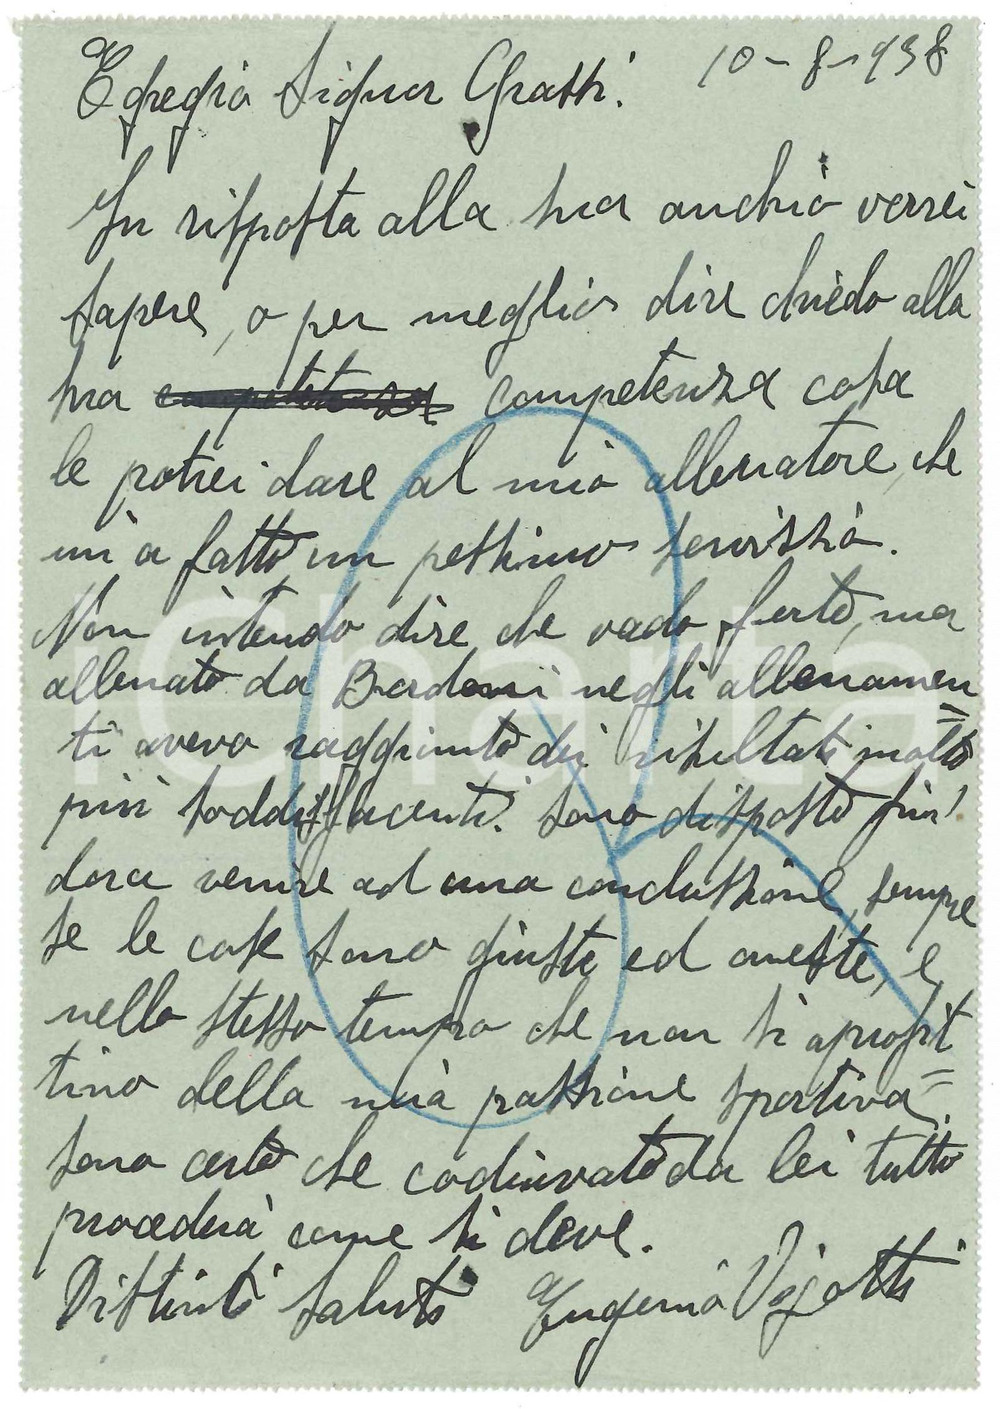 10-8-938
Egregio Signor Grassi.
In risposta alla sua anchio verrei
sapere, o per meglio dire chiedo alla
sua competenza cosa
le potrei dare al mio allenatore, che
mi a fatto un pessimo servissio.
Non intendo dire che vado forte, ma
allenato da Bardoni negli allenamen
ti avevo raggiunto dei risultati molto
più soddisfacenti. Sono disposto fin'
dora venire ad una conclussione, sempre
se le cose sono giuste ed oneste, e
nello stesso tempo che non si aprofit
tino della mia passione sportiva.
Sono certo che codiuvato da lei tutto
procederà come si deve.
Distinti saluti Eugenio Vigotti
iCharta